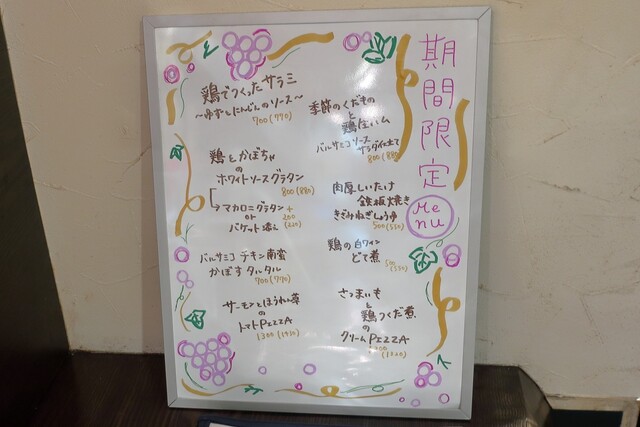 期間限定
Menu
季節のくだもの
と
鶏生ハム
バルサミコソース
サラダ仕立て
800(880)
肉厚しいたけ
鉄板焼き
きざみねぎしょうゆ
500(550)
鶏の白ワイン
どて煮
500(550)
さつまいも
と
鶏つくだ煮
の
クリームPIZZA
(1320)
鶏でつくったサラミ
〜ゆずとにんじんのソース〜
700(770)
鶏とかぼちゃ
の
ホワイトソースグラタン
800(880)
→マカロニグラタン +
or 200
バケット添え (220)
バルサミコ チキン南蛮
かぼすタルタル
700(770)
サーモンとほうれん草
の
トマトPIZZA
1300(1430)